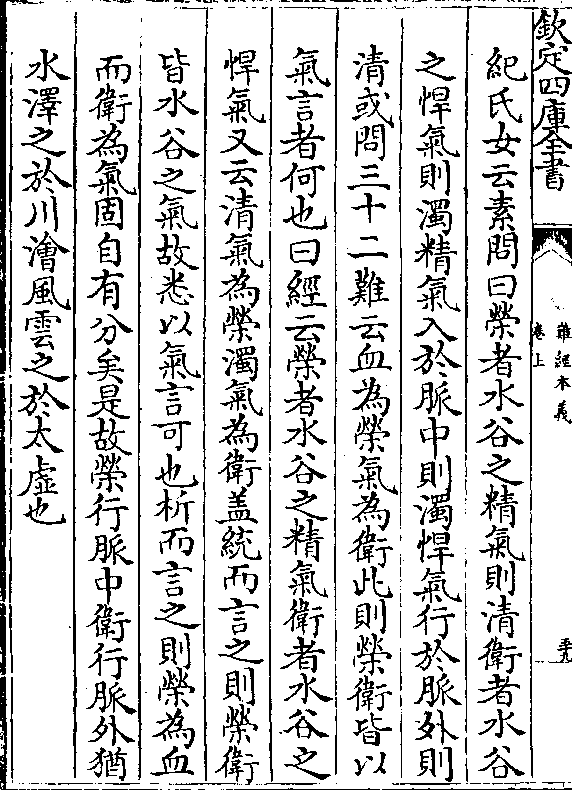 欽定四庫全書
難經本義
卷上
五九
紀氏女云素問曰榮者水谷之精氣則清衛者水谷
之悍氣則濁精氣入於脈中則濁悍氣行於脈外則
清或問三十二難云血為榮氣為衛此則榮衛皆以
氣言者何也曰經云榮者水谷之精氣衛者水谷之
悍氣又云清氣為榮濁氣為衛盖統而言之則榮衛
皆水谷之氣故悉以氣言可也析而言之則榮為血
而衛為氣固自有分矣是故榮行脈中衛行脈外猶
水澤之於川澮風雲之於太虛也